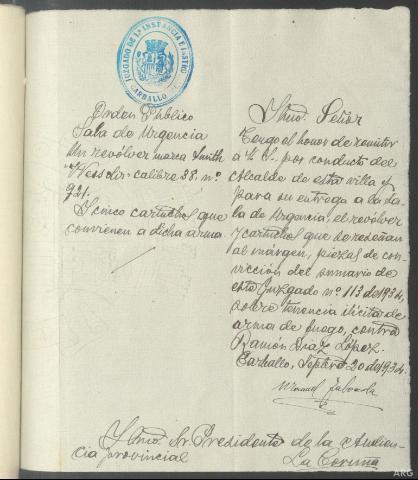 JUZGADO DE 1ª INSTANCIA E INSTRUC
CARBALLO
Orden Público
Sala de Urgencia
Un revólver marca Smith
Wesolir calibre 38. nº
921.
Y cinco cartuchos que
convienen a dicha arma.
Ilmo. Señor
Tengo el honor de remitir
a V. I. por conducto del
Alcalde de esta villa y
para su entrega a la Sa-
la de Urgencia, el revólver
y cartuchos que se reseñan
al márgen, piezas de con-
vicción del sumario de
este Juzgado nº 113 de 1934,
sobre tenencia ilícita de
arma de fuego, contra
Ramón Diaz López.
Carballo, Septbre 20 de 1934.
Manuel
Ilmo. Sr. Presidente de la Audien-
cia provincial
La Coruña
ARG